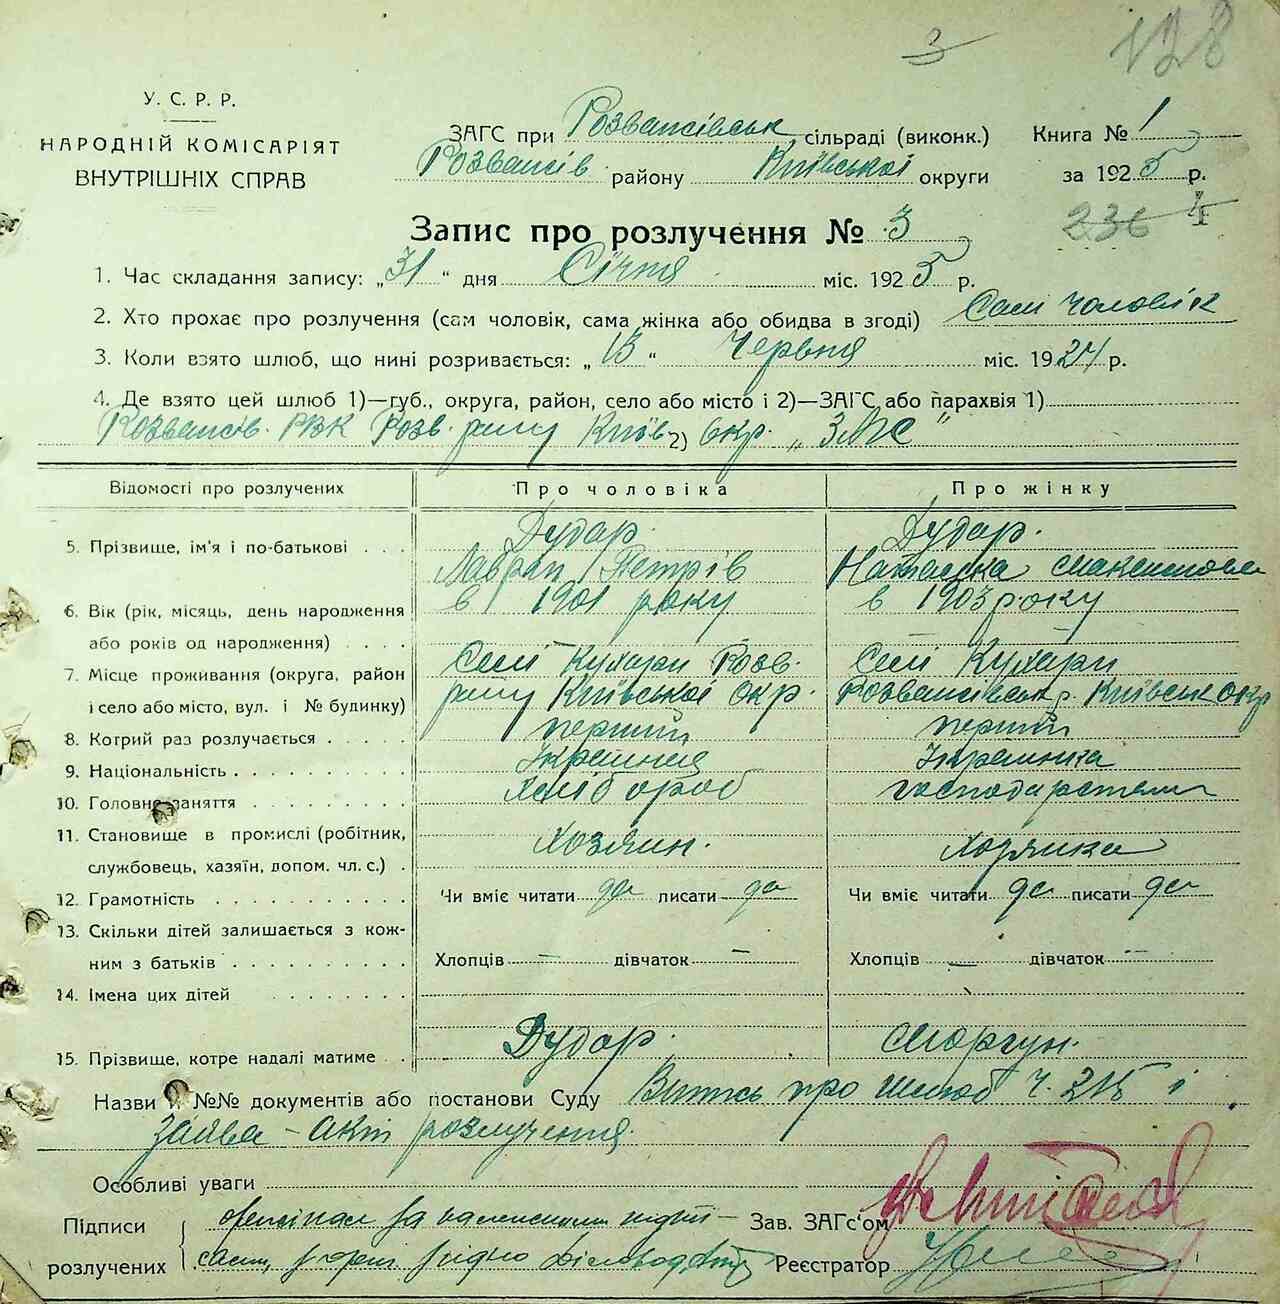 3
128
У. С. Р. Р.
НАРОДНІЙ КОМІСАРІЯТ
ВНУТРІШНІХ СПРАВ
ЗАГС при Розважівськ сільраді (виконк.) Книга № 1
Розважів району Київської округи за 1925 р.
236 4
Запис про розлучення № 3
1. Час складання запису: „31“ дня Січня міс. 1925 р.
2. Хто прохає про розлучення (сам чоловік, сама жінка або обидва в згоді) Сам чоловік
3. Коли взято шлюб, що нині розривається: „13“ Червня міс. 1924 р.
4. Де взято цей шлюб 1)—губ., округа, район, село або місто і 2)—ЗАГС або парахвія 1)
Розважів. РВК Розв. рану Київ 2) Окр. „ЗАГС“
Відомості про розлучених Про чоловіка Про жінку
5. Прізвище, ім'я і по-батькові Дудар Дудар
Лаврін Петрів Наталка Максимова
6. Вік (рік, місяць, день народження в 1901 року в 1903 року
або років од народження)
7. Місце проживання (округа, район Селі Кухари Розв. Селі Кухари
і село або місто, вул. і № будинку) рану Київської окр. Розважівськ р. Київськ окр
8. Котрий раз розлучається перший перший
9. Національність Українец Українка
10. Головне заняття Хлібороб
11. Становище в промислі (робітник, Хозяин. Хозяйка
службовець, хазяїн, допом. чл. с.)
12. Грамотність Чи вміє читати да писати да Чи вміє читати да писати да
13. Скільки дітей залишається з кож-
ним з батьків Хлопців — дівчаток — Хлопців — дівчаток —
14. Імена цих дітей
15. Прізвище, котре надалі матиме Дудар. Моргун.
Назви й №№ документів або постанови Суду Витяг про шлюб Ч. 215 і
заява-акт розлучення.
Особливі уваги
Підписи розлучених оригінал за належними підпи- Зав. ЗАГс'ом
сами, з ориг. згідно Діловод Реєстратор